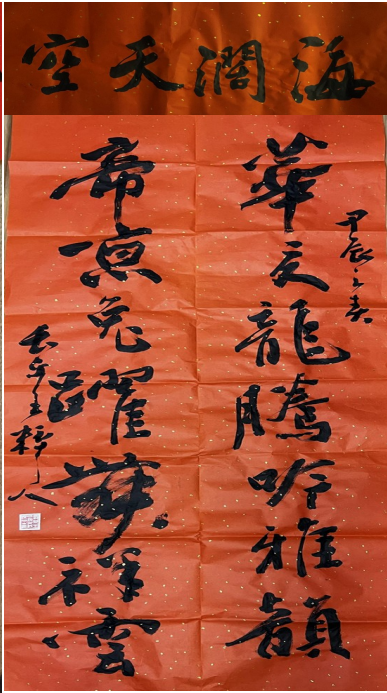 海濶天空
甲辰之春
華文龍騰吟雅韻
帝京兔躍舞祥雲